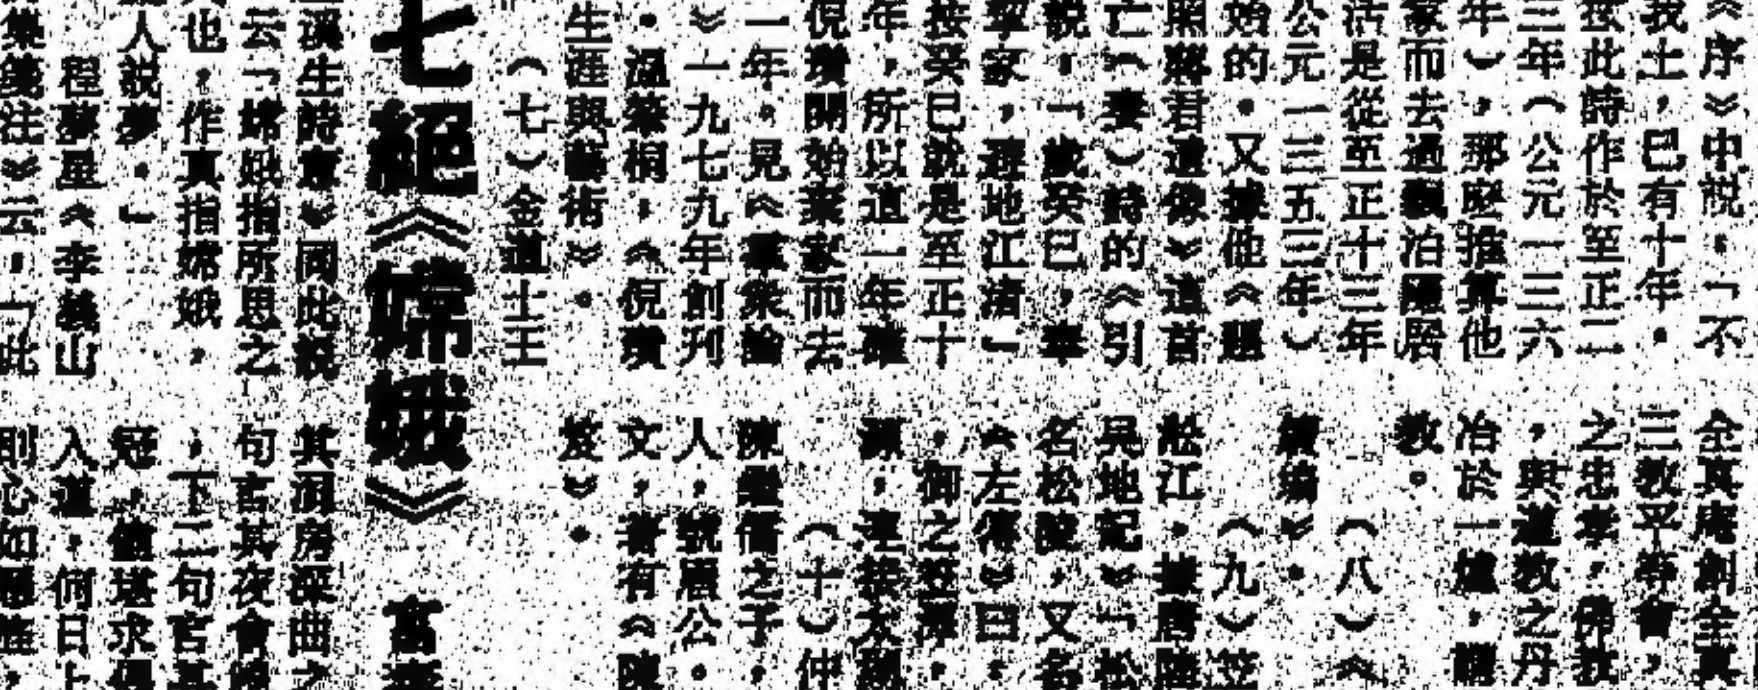 《序》中説：「不
我土，已有十年。
按此詩作於至正二
三年（公元一三六
年），那麽推算他
家而去過飄泊隱居
活是從至正十三年
公元一三五三年）
始的。又據他《題
君遺像》這首
亡（妻）詩的《引
説：「歲癸巳，
挈家，避地江渚」
按癸巳就是至正十
年，所以這一年確
倪瓚開始棄家而去
一年。見《
》一九七九年創刊
・溫肇桐，《倪瓚
生涯與藝術》。
（七）金道士王
全真庵創全真
三教平等會，
之忠孝，佛教
，與道教之丹
冶於一爐，
教。
（八）《
類編》。
（九）笠
松江，據唐陸
吳地記》「松
名松陵，又名
《左傳》曰，
，御之笠澤，
源，連接太湖
（十）仲
陳繼儒之手，
人，號眉公。
文，著有《陳
笈》。
七絕《嫦娥》 高
溪生詩意》同此説
云「嫦娥指所思之
也，作真指嫦娥，
人説夢。」
程夢星《李義山
集箋注》云：「此
其洞房深曲之
句言其夜會
，下二句言其
冠，堪求
入道，何日上
則心如